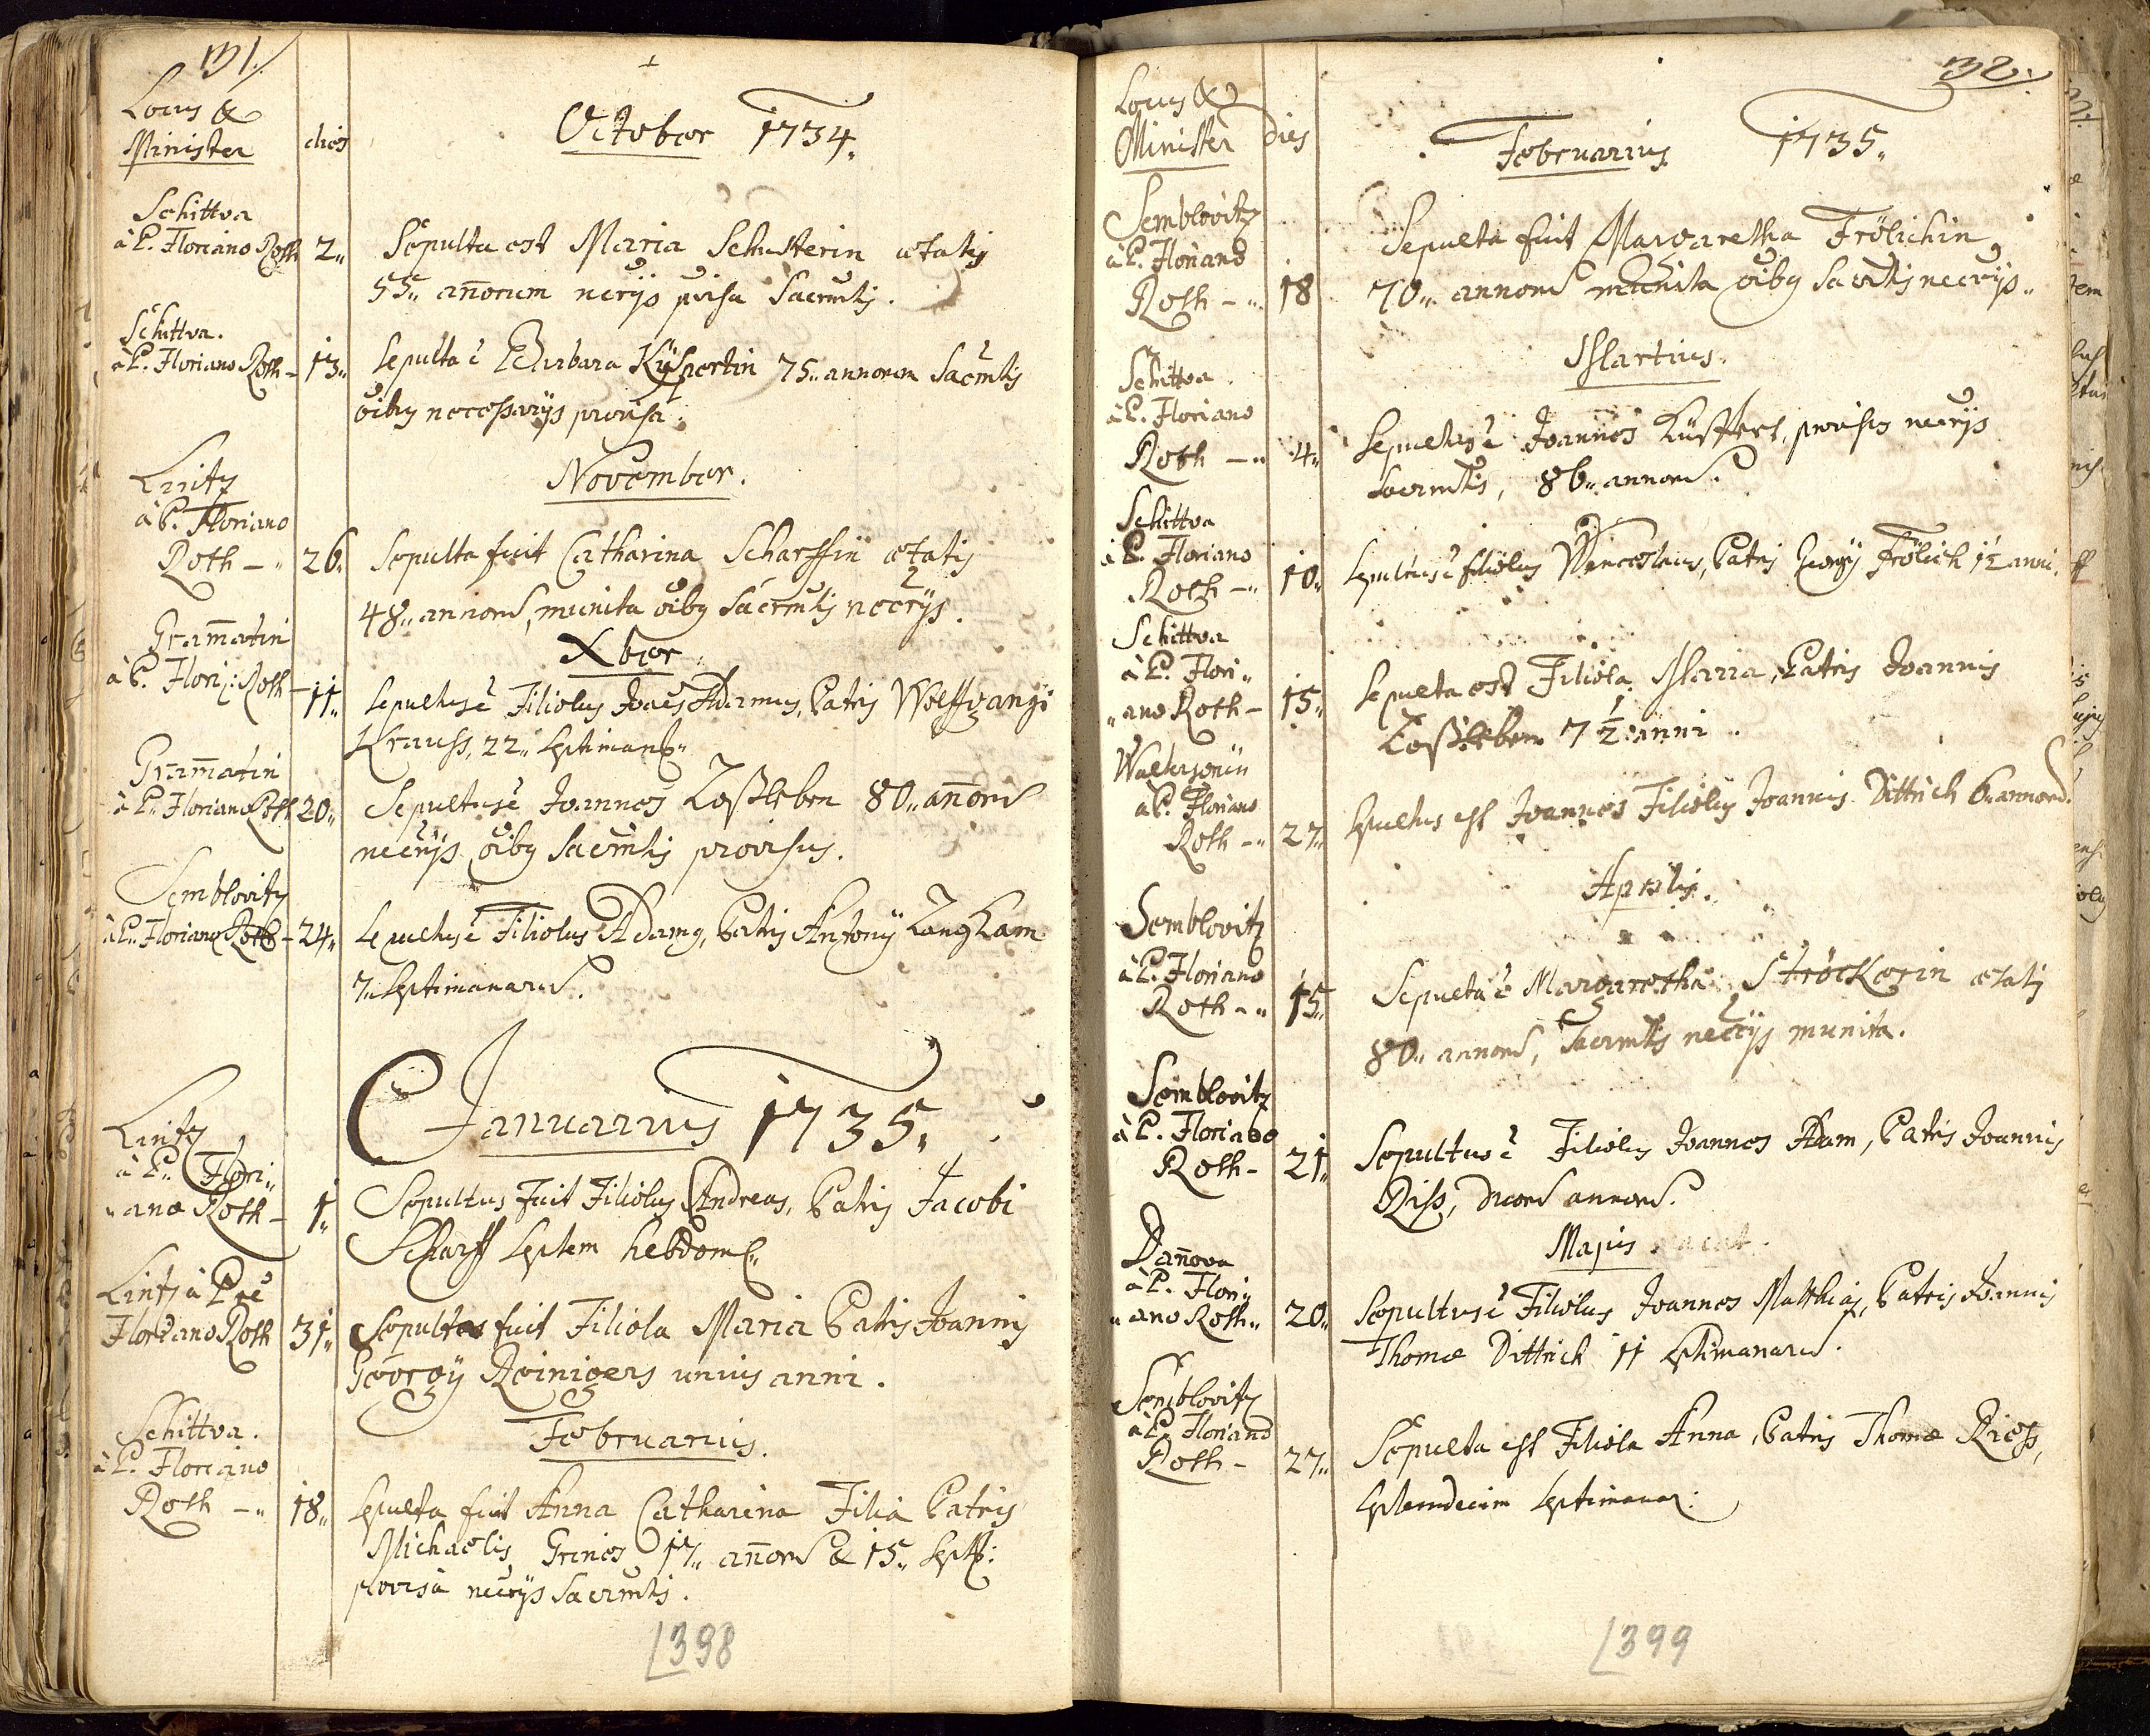 131.
Locus &
Minister
dies
October 1734.
Schittva
à P. Floriano Roth 2. Sepulta est Maria Schusterin ætatis
55. añorum necrijs pvisa Sacrmtis.
Schittva.
à P. Floriano Roth - 13. Sepulta ẽ Barbara Küspertin 75. annorum Sacmtis
oibus necessarijs provisa.
November.
Lintz
à P. Floriano
Roth - 26. Sepulta fuit Catharina Scharffin ætatis
48. annorum, munita oibus Sacrmtis necrijs.
Xber.
Gram̃atin
à P. Flori: Roth - 11. Sepultus ẽ Filiolus Joães Adamus, Patris Wolffgangi
Krauss, 22. septimanar.
Gram̃atin
à P. Floriano Roth 20. Sepultus ẽ Joannes Losßleben 80. añorum
necrijs oibus Sacrmtis provisus.
Semblovitz
à P. Floriano Roth - 24. Sepultus ẽ Filiolus Adamus, Patris Antonij LangLam
7. septimanarum.
Januarius 1735.
Lintz
à P. Flori-
ano Roth - 1. Sepultus fuit Filiolus Andreas, Patris Jacobi
Scharff septem hebdom.
Lintz à Pre
Floriano Roth 31. Sepulta fuit Filiola Maria Patris Joannis
Georgij Reinigers unius anni.
Februarius.
Schittva.
à P. Floriano
Roth - 18. Sepulta fuit Anna Catharina Filia Patris
Michaelis Grines 17. añorum & 15. sept:
provisa necrijs Sacrmtis.
398
132.
Locus &
Minister
Dies
Februarius 1735.
Semblovitz
à P. Floriano
Roth - 18 Sepulta fuit Margaretha Frölichin,
70. annorum munita oibus Sacrmtis necrijs.
Martius.
Schittva.
à P. Floriano
Roth - 4. Sepultus ẽ Joannes Küspert, provisus necrijs
Sacrmtis, 86. annorum.
Schittva
à P. Floriano
Roth - 10. Sepultus ẽ filiolus Wenceslaus, Patris Georgij Frölich 1½ anni.
Schittva
à P. Flori-
ano Roth - 15. Sepulta est Filiola Maria, Patris Joannis
Losßleben 7 ½ anni.
à P. Floriano
Roth - 27. Sepultus est Joannes Filiolus Joannis Dittrich 6. annorum.
Aprilis.
Semblovitz
à P. Floriano
Roth - 15. Sepulta ẽ Margaretha Ströckerin ætatis
80. annorum, Sacrmtis necrijs munita.
Semblovitz
à P. Floriano
Roth - 21. Sepultus ẽ Filiolus Joannes Adam, Patris Joannis
Riss, duorum annorum.
Majus
Dañova
à P. Flori-
ano Roth. 20. Sepultus ẽ Filiolus Joannes Matthias, Patris Joannis
Thomæ Dittrich 11 septimanarum.
Semblovitz
à P. Floriano
Roth - 27. Sepulta est Filiola Anna, Patris Thomæ Riess,
septemdecim septimanar:
399